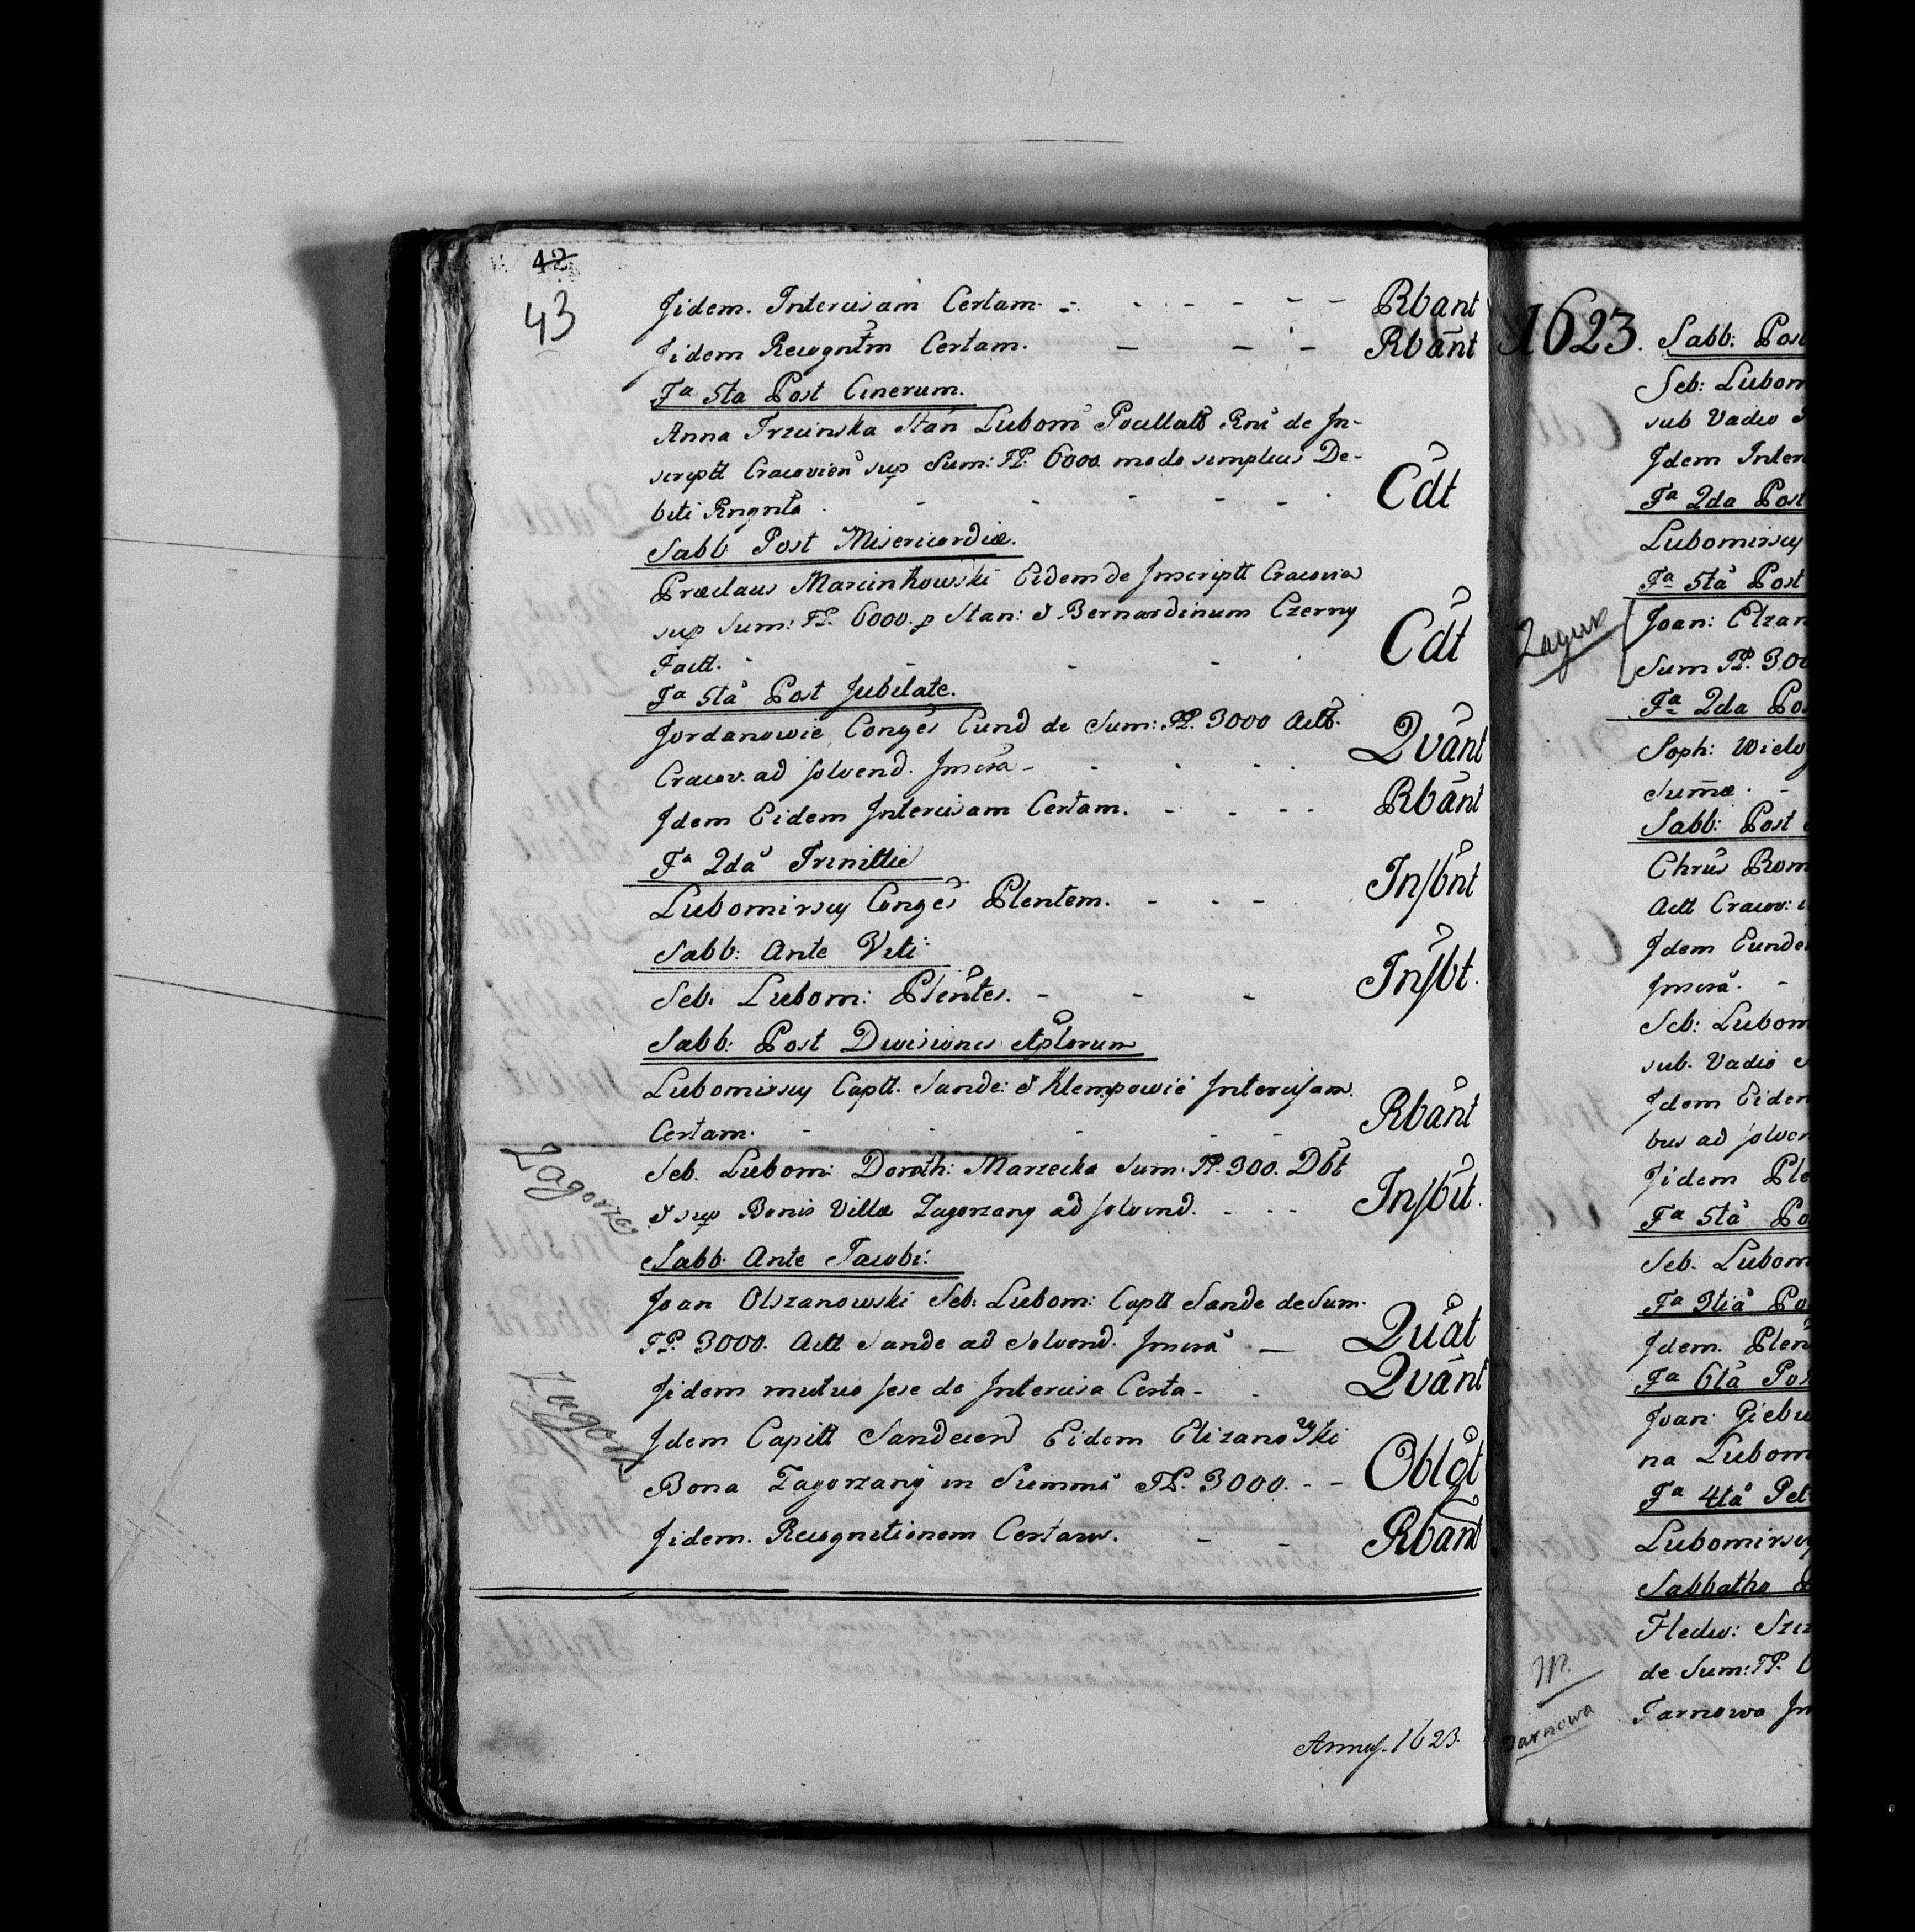 42
43
Jidem. Intercisam Certam. - - - - - Rbant
Jidem Recognitm Certam. - - - Rbant
Fa 5ta Post Cinerum.
Anna Trzcinska Stan Lubom Pocillato Rni de In-
scriptt Cracovien sup Sum: FP. 6000 modo simplicis De-
biti Rngnta - - - - - Cdt
Sabb Post Misericordiæ.
Præclaus Marcinkowski Eidem de Inscriptt Cracovien
sup Sum: FP. 6000. p Stan: & Bernardinum Czerny
Factt. - - - - Cdt
Fa 5ta Post Jubilate.
Jordanowie Conges Eund de Sum: FP. 3000 Actt.
Cracov. ad solvend. Inscra - - - - Qvant
Idem Eidem Intercisam Certam. - - - - Rbant
Fa 2da Trinittis
Lubomirscy Conges Plentem. - - - Insbnt
Sabb: Ante Viti
Seb: Lubom: Plentes. - - - Insbt.
Sabb: Post Divisionis Aplorum
Lubomirscy Captt. Sande: & Klempowie Intercisam.
Certam. - - - - - Rbant
Zagorza
Seb. Lubom: Doroth: Marzecka Sum. FP. 300. Dbt
& sup Bonis Villæ Zagorzany ad solvend. - - - Insbit.
Sabb. Ante Jacobi.
Joan Olszanowski Seb. Lubom: Captt Sande de Sum.
FP. 3000. Actt Sande ad Solvend. Inscra - Quat
Jidem mutuo sese de Intercisa Certa - - Qvant
Idem Capitt Sandecen Eidem Elizanowski
Bona Zagorzany in Summa FP. 3000. - - Oblgt
Jidem. Recognitionem Certam. - - Rbant
Annus. 1623.
1623. Sabb: Post
Seb: Lubom
sub Vadio
Idem Inter
Fa 2da Post
Lubomirscy
Fa 5ta Post
Joan: Elzan
Sum FP. 300
Fa 2da Pos
Soph: Wielo
Sumæ. -
Sabb: Post
Chrus Rom
Actt Cracov:
Idem Eunde
Inscra. -
Seb: Lubom
sub. Vadio
Idem Eiden
bus ad solven
Jidem Ple
Fa 5ta Po
Seb. Lubom
Fa 3tia Po
Idem. Plen
Fa 6ta Pos
Joan: Giebu
na Lubom
Fa 4ta Pet
Lubomirscy
Sabbatho
Fledw: Szcz
de Sum: FP.
Tarnowo In
Tarnowa